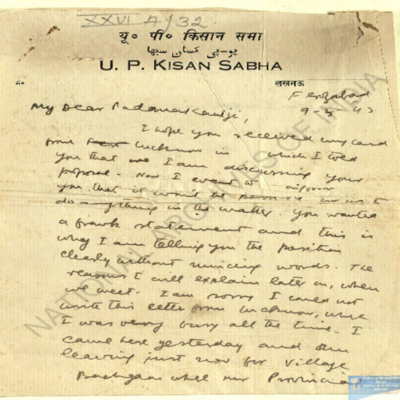 XXVI A/32
यू० पी० किसान सभा
یو-پی کسان سبھا
U. P. KISAN SABHA
लखनऊ
Fyzabad
9-3-43
My Dear Padamakantji,
I hope you received my card
from Lucknow in which I told
you that I am discussing your
proposal. Now I want to inform
you that it won't be possible for us to
do anything in the matter. You wanted
a frank statement and this is
why I am telling you the position
clearly without mincing words. The
reasons I will explain later on, when
we meet. I am sorry I could not
write this letter from Lucknow, where
I was very busy all the time. I
came here yesterday and am
leaving just now for village
where our Provincial
NATIONAL ARCHIVES OF INDIA